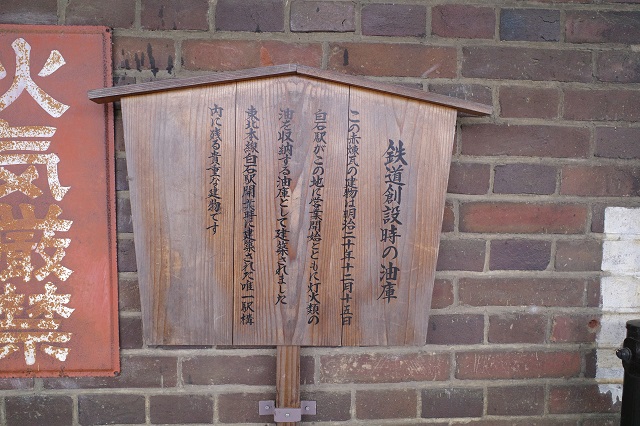 鉄道創設時の油庫
この赤煉瓦の建物は明治二十年十二月十五日
白石駅がこの地に営業開始とともに灯火類の
油を収納する油庫として建築されました
東北本線白石駅開業時に建築された唯一駅構
内に残る貴重な建物です
火気厳禁